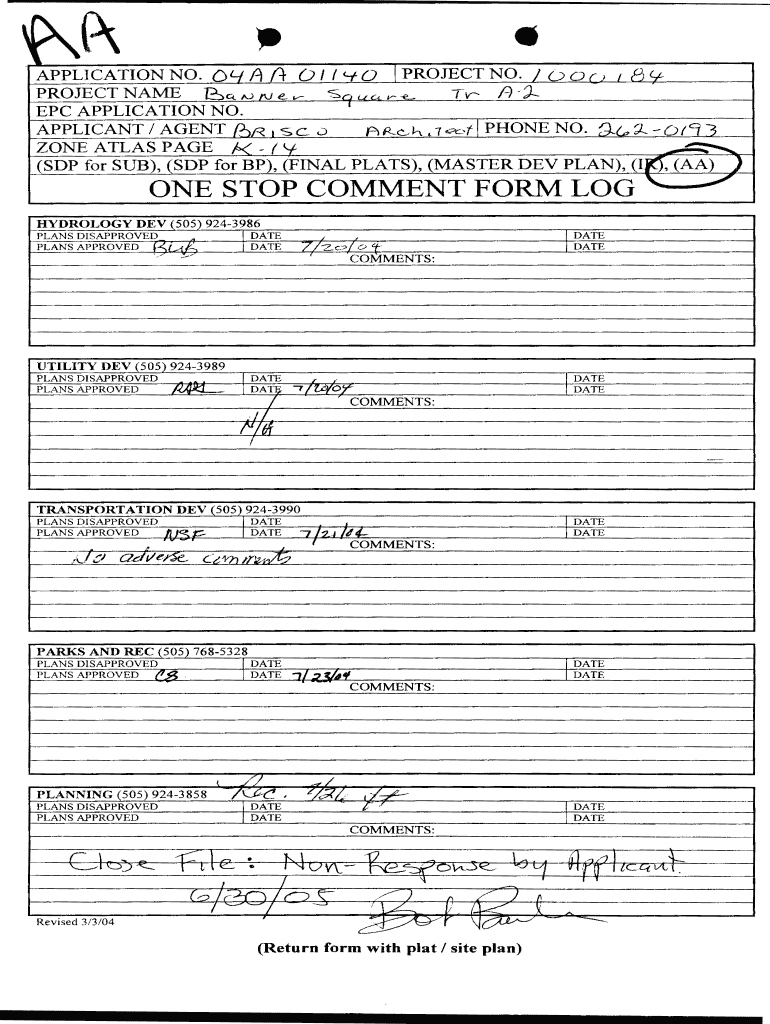 AA
APPLICATION NO. 04AA 01140 PROJECT NO. 1000184
PROJECT NAME Banner Square Tr A-2
EPC APPLICATION NO.
APPLICANT / AGENT BRISCO Architect PHONE NO. 262-0193
ZONE ATLAS PAGE K-14
(SDP for SUB), (SDP for BP), (FINAL PLATS), (MASTER DEV PLAN), (IP), (AA)
ONE STOP COMMENT FORM LOG
HYDROLOGY DEV (505) 924-3986
PLANS DISAPPROVED DATE DATE
PLANS APPROVED BLB DATE 7/20/04 DATE
COMMENTS:
UTILITY DEV (505) 924-3989
PLANS DISAPPROVED DATE DATE
PLANS APPROVED DATE 7/20/04 DATE
COMMENTS:
N/A
TRANSPORTATION DEV (505) 924-3990
PLANS DISAPPROVED DATE DATE
PLANS APPROVED NSF DATE 7/21/04 DATE
COMMENTS:
No adverse comments
PARKS AND REC (505) 768-5328
PLANS DISAPPROVED DATE DATE
PLANS APPROVED CS DATE 7/23/04 DATE
COMMENTS:
PLANNING (505) 924-3858 Rec. 7/26
PLANS DISAPPROVED DATE DATE
PLANS APPROVED DATE DATE
COMMENTS:
Close File: Non-Response by Applicant.
6/30/05 Bob
Revised 3/3/04
(Return form with plat / site plan)